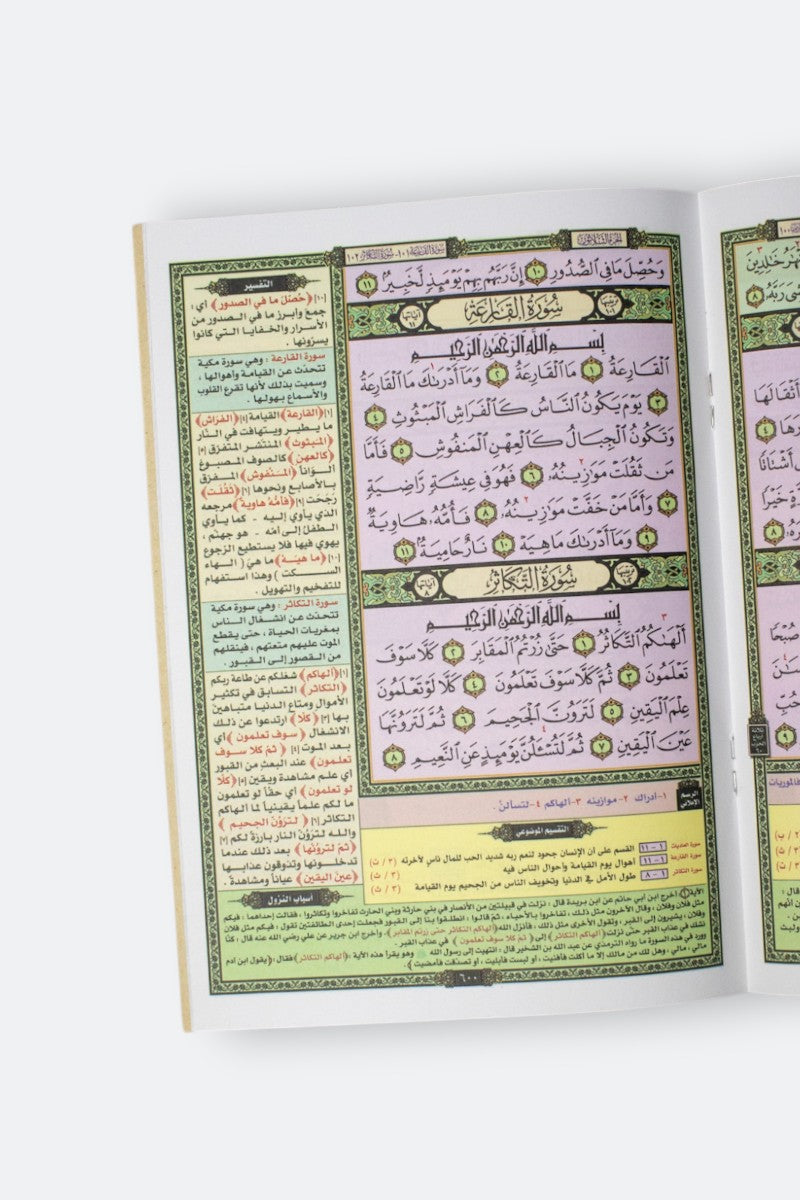 الجزء الثلاثون
سورة القارعة ١٠١ - سورة التكاثر ١٠٢
وَحُصِّلَ مَا فِي ٱلصُّدُورِ ١٠ إِنَّ رَبَّهُم بِهِمْ يَوْمَئِذٍ لَّخَبِيرٌ ١١
ترتيبها ١٠١ سُورَةُ القَارِعَةِ آياتها ١١
بِسْمِ ٱللَّهِ ٱلرَّحْمَٰنِ ٱلرَّحِيمِ
ٱلْقَارِعَةُ ١ مَا ٱلْقَارِعَةُ ٢ وَمَآ أَدْرَىٰكَ مَا ٱلْقَارِعَةُ
٣ يَوْمَ يَكُونُ ٱلنَّاسُ كَٱلْفَرَاشِ ٱلْمَبْثُوثِ ٤
وَتَكُونُ ٱلْجِبَالُ كَٱلْعِهْنِ ٱلْمَنفُوشِ ٥ فَأَمَّا
مَن ثَقُلَتْ مَوَٰزِينُهُۥ ٦ فَهُوَ فِي عِيشَةٍ رَّاضِيَةٍ
٧ وَأَمَّا مَنْ خَفَّتْ مَوَٰزِينُهُۥ ٨ فَأُمُّهُۥ هَاوِيَةٌ
٩ وَمَآ أَدْرَىٰكَ مَا هِيَهْ ١٠ نَارٌ حَامِيَةٌ ١١
سُورَةُ التَّكَاثُرِ آياتها ٨
بِسْمِ ٱللَّهِ ٱلرَّحْمَٰنِ ٱلرَّحِيمِ
أَلْهَىٰكُمُ ٱلتَّكَاثُرُ ١ حَتَّىٰ زُرْتُمُ ٱلْمَقَابِرَ ٢ كَلَّا سَوْفَ
تَعْلَمُونَ ٣ ثُمَّ كَلَّا سَوْفَ تَعْلَمُونَ ٤ كَلَّا لَوْ تَعْلَمُونَ
عِلْمَ ٱلْيَقِينِ ٥ لَتَرَوُنَّ ٱلْجَحِيمَ ٦ ثُمَّ لَتَرَوُنَّهَا
عَيْنَ ٱلْيَقِينِ ٧ ثُمَّ لَتُسْـَٔلُنَّ يَوْمَئِذٍ عَنِ ٱلنَّعِيمِ ٨
الرسم الإملائي
١- أدراك ٢- موازينه ٣- ألهاكم ٤- لتسألن .
التفسير
[١٠] ﴿حُصِّلَ ما في الصدور﴾ أي :
جمع وأبرز ما في الصدور من
الأسرار والخفايا التي كانوا
يسرّونها .
سورة القارعة : وهي سورة مكية
تتحدّث عن القيامة وأهوالها ،
وسميت بذلك لأنها تقرع القلوب
والأسماع بهولها .
[١] ﴿القارعة﴾ القيامة [٤] ﴿الفراش﴾
ما يطير ويتهافت في النّار
﴿المبثوث﴾ المنتشر المتفرق [٥]
﴿كالعهن﴾ كالصوف المصبوغ
ألواناً ﴿المنفوش﴾ المفرق
بالأصابع ونحوها [٦] ﴿ثَقُلَت﴾
رَجَحَت [٩] ﴿فأمُّه هاوية﴾ مرجعه
الذي يأوي إليه - كما يأوي
الطفل إلى أمّه - هو جهنم ،
يهوي فيها فلا يستطيع الرّجوع
[١٠] ﴿ما هيه﴾ ما هي ( الهاء
للسكت ) وهذا استفهام
للتفخيم والتهويل .
سورة التكاثر : وهي سورة مكية
تتحدث عن انشغال الناس
بمغريات الحياة ، حتى يقطع
الموت عليهم متعتهم ، فينقلهم
من القصور إلى القبور .
[١] ﴿ألهاكم﴾ شغلكم عن طاعة ربكم
﴿التكاثر﴾ التسابق في تكثير
الأموال ومتاع الدنيا متباهين
بها [٣] ﴿كلّا﴾ ارتدعوا عن ذلك
الانشغال ﴿سوف تعلمون﴾ أي
بعد الموت [٤] ﴿ثم كلا سوف
تعلمون﴾ عند البعث من القبور
أي علم مشاهدة ويقين [٥] ﴿كلّا
لو تعلمون﴾ أي حقاً لو تعلمون
ما لكم علماً يقينياً لما ألهاكم
التكاثر [٦] ﴿لترَوُنّ الجحيم﴾
والله لترَوُنّ النار بارزة لكم [٧]
﴿ثمّ لترونّها﴾ بعد ذلك عندما
تدخلونها وتذوقون عذابها
﴿عين اليقين﴾ عياناً ومشاهدة .
التقسيم الموضوعي
سورة العاديات ١ - ١١ القسم على أن الإنسان جحود لنعم ربه شديد الحب للمال ناسٍ لآخرته (٣ / ت)
سورة القارعة ١ - ١١ أهوال يوم القيامة وأحوال الناس فيه (٣ / ت)
سورة التكاثر ١ - ٨ طول الأمل في الدنيا وتخويف الناس من الجحيم يوم القيامة (٣ / ت)
أسباب النزول
الآية ١ أخرج ابن أبي حاتم عن ابن بريدة قال : نزلت في قبيلتين من الأنصار في بني حارثة وبني الحارث تفاخروا وتكاثروا ، فقالت إحداهما : فيكم
مثل فلان وفلان ، وقال الآخرون مثل ذلك ، تفاخروا بالأحياء ، ثم قالوا : انطلقوا بنا إلى القبور فجعلت إحدى الطائفتين تقول : فيكم مثل فلان
وفلان ، يشيرون إلى القبر ، وتقول الأخرى مثل ذلك ، فأنزل الله ﴿ألهاكم التكاثر حتى زرتم المقابر﴾ . وأخرج ابن جرير عن علي رضي الله عنه قال : كنّا
نشك في عذاب القبر حتى نزلت ﴿ألهاكم التكاثر﴾ إلى ﴿ثم كلا سوف تعلمون﴾ في عذاب القبر .
وورد في هذه السورة ما رواه الترمذي عن عبد الله بن الشخير قال : انتهيت إلى رسول الله ﷺ وهو يقرأ هذه الآية : ﴿ألهاكم التكاثر﴾ فقال : «يقول ابن آدم
مالي مالي ، وهل لك من مالك إلا ما أكلت فأفنيت ، أو لبست فأبليت ، أو تصدقت فأمضيت» .
٦٠٠